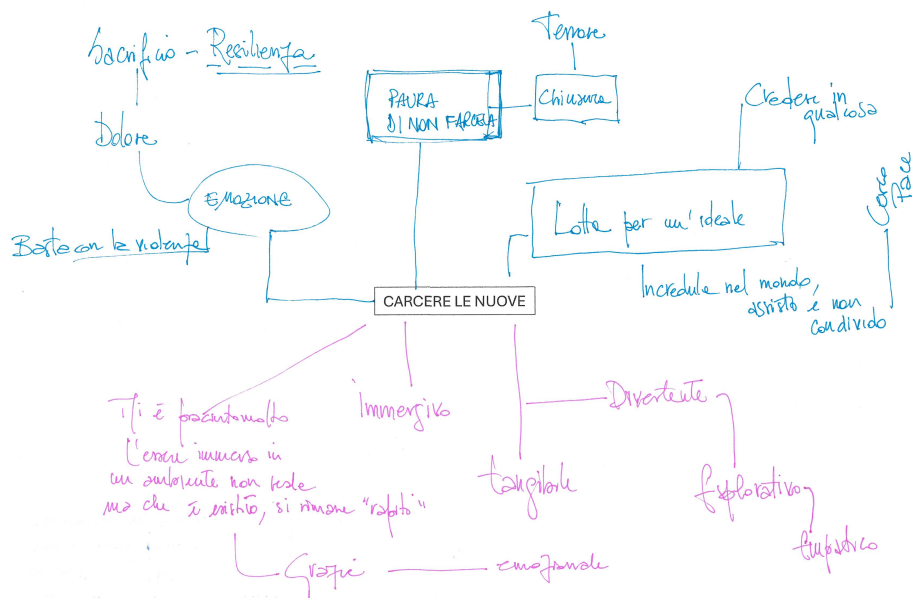 Terrore
Sacrificio - Resilienza
PAURA
DI NON FARCELA
Chiusura
Credere in
qualcosa
Dolore
EMOZIONE
Lotta per un'ideale
Cerco
Pace
Basta con la violenza
Incredula nel mondo,
assisto e non
condivido
CARCERE LE NUOVE
Mi è piaciuto molto
l'essere immerso in
un ambiente non reale
ma che è esistito, si rimane "rapito"
immersivo
Divertente
tangibile
Esplorativo
Empatico
Grazie
emozionale